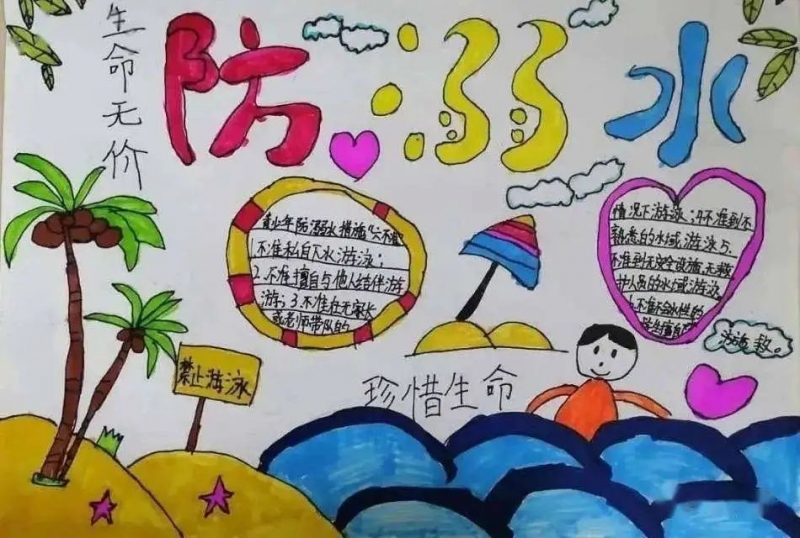 生命无价
防溺水
青少年防溺水措施"六不准"
1.不准私自下水游泳;
2.不准擅自与他人结伴游
游;3.不准在无家长
或老师带队的
情况下游泳;4.不准到不
熟悉的水域游泳5.
不准到无安全设施、无救
护人员的水域游泳
6.不准不会水性的
学生擅自下
水施救。
禁止游泳
珍惜生命